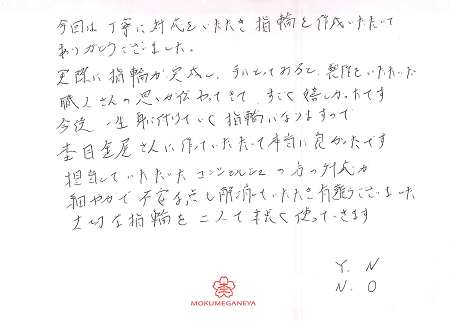 今回は丁寧に対応をいただき指輪を作成いただいて
ありがとうございました。
実際に指輪が完成し、手にとってみると、製作をいただいた
職人さんの思いが伝わってきて、すごく嬉しかったです
今後一生身に付けていく指輪になりますので
杢目金屋さんに作っていただいて本当に良かったです
担当していただいたコンシェルジュの方の対応が
細やかで不安な点も解消していただき有難うございました
大切な指輪を二人で末長く使っていきます
Y. N
N. O
MOKUMEGANEYA